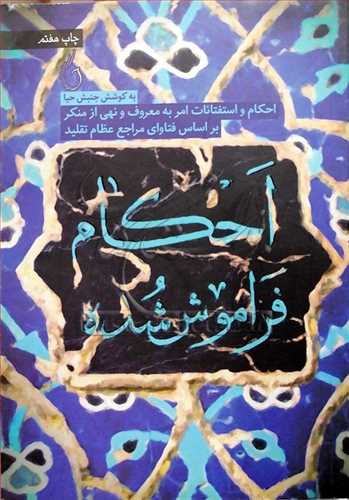 چاپ هفتم
به کوشش جنبش حیا
احکام و استفتائات امر به معروف و نهی از منکر
بر اساس فتاوای مراجع عظام تقلید
احکام
فراموش شده